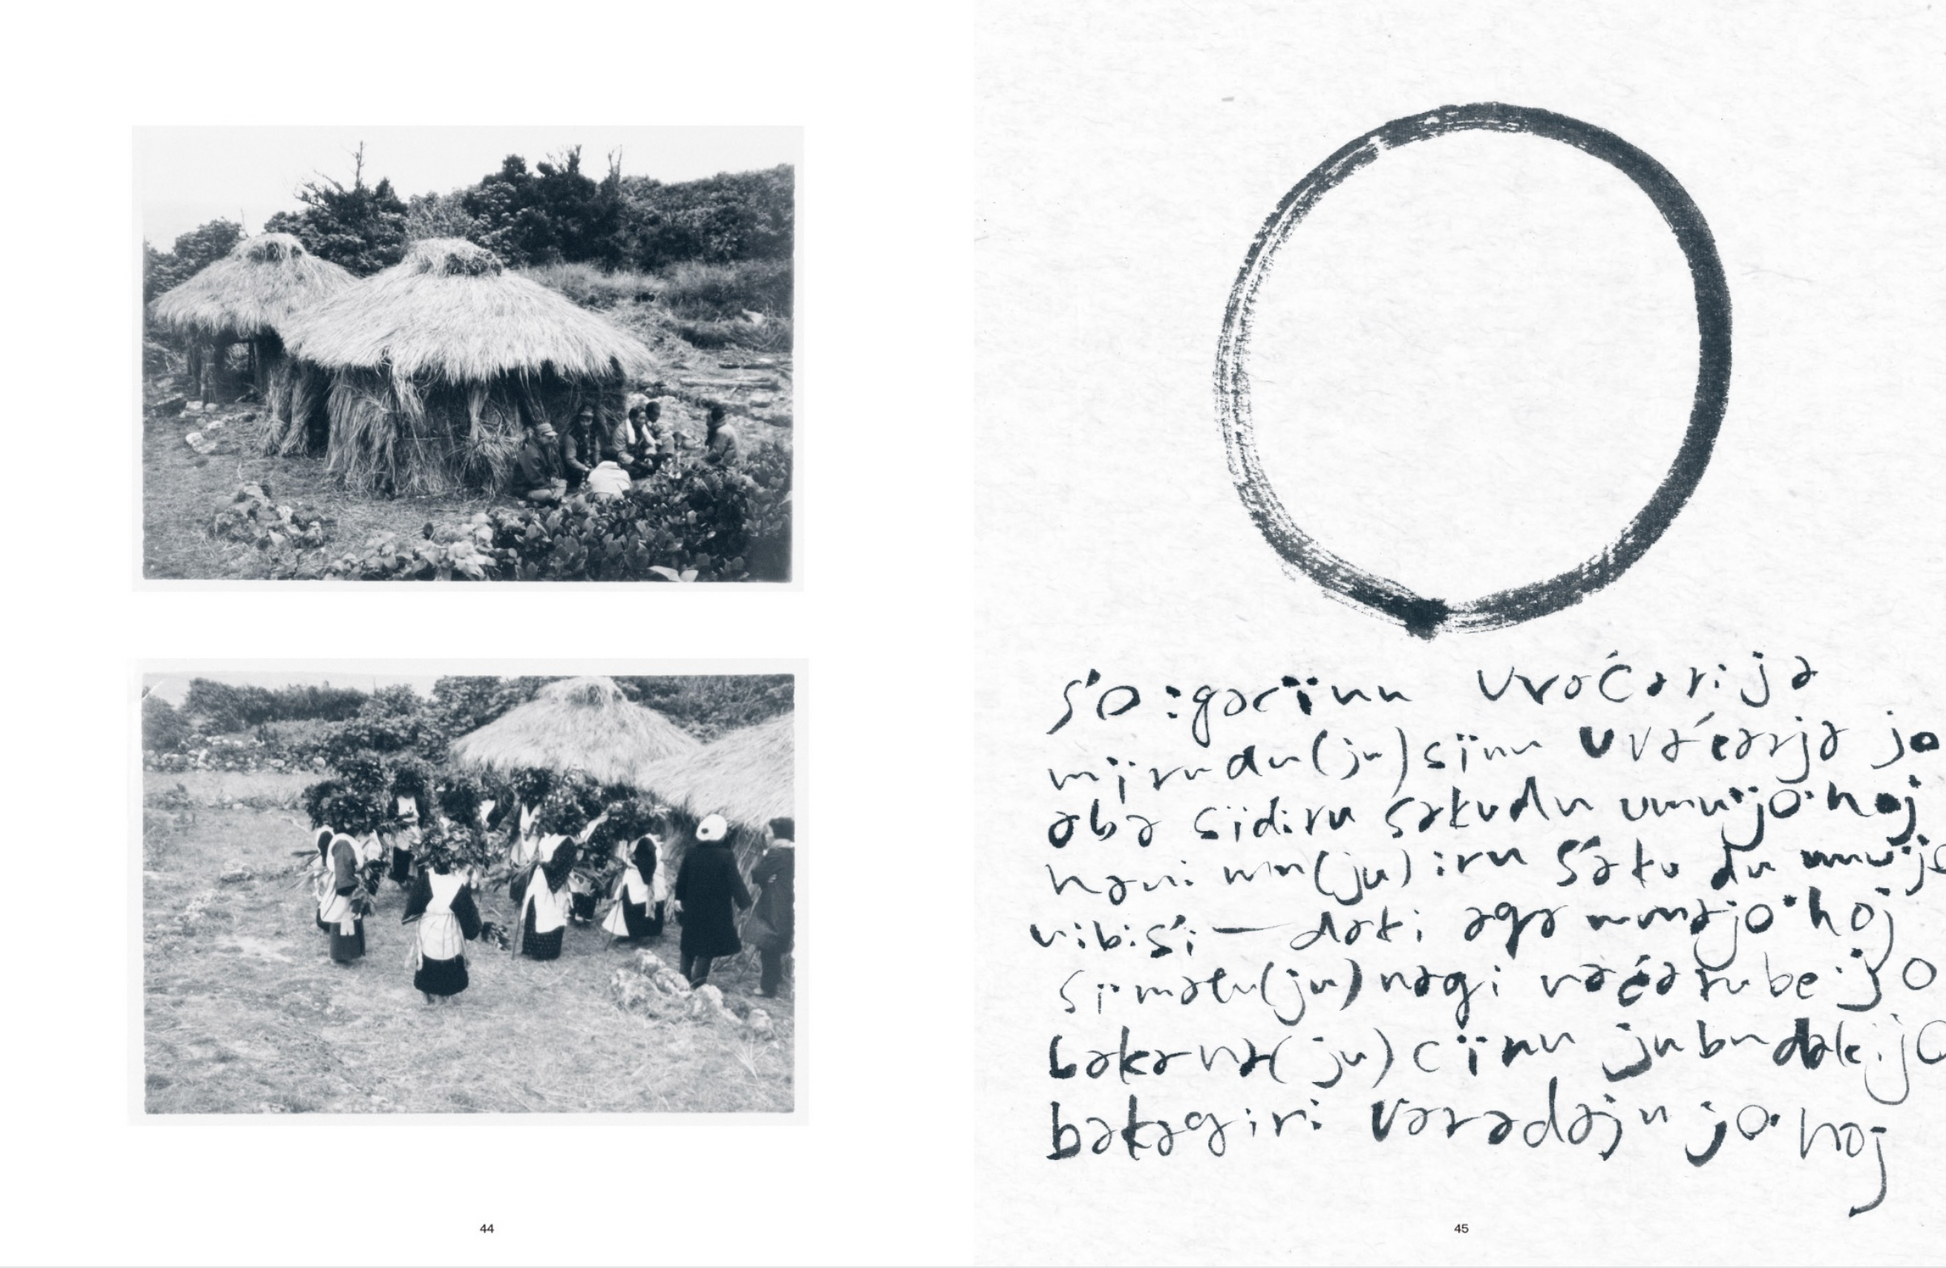 44
so:gacïnu uvaćarija
mïrudu(ju)sïnu uvaćarja jo
aba sïdiru sakudu umujo·hoj
hani mu(ju)iru saku du umujo
nibiśi—dati aga munajo·hoj
sïmatu(ju)nagi vaćarubeijo
bakana(ju)cïnu jubudakeijo
bakagiri varadaju jo·hoj
45